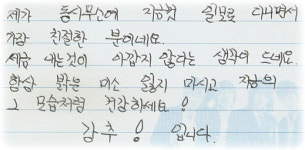 제가 동사무소에 지금껏 실로 다니면서
가장 친절한 분이네요.
세금 내는것이 아깝지 않다는 생각이 드네요.
항상 밝은 미소 잃지 마시고 지금의
그 모습처럼 건강하세요!
강추! 입니다.